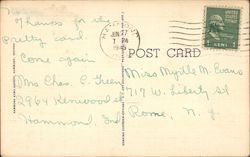 Thanks for the
pretty card
Come again
Mrs Chas. C. Green
2964 Kenwood st
Hammond, Ind
HAMMOND
JUN 27
7 PM
1945
POST CARD
1
CENT
Miss Myrtle M. Evans
717 W. Liberty St
Rome, N. Y.